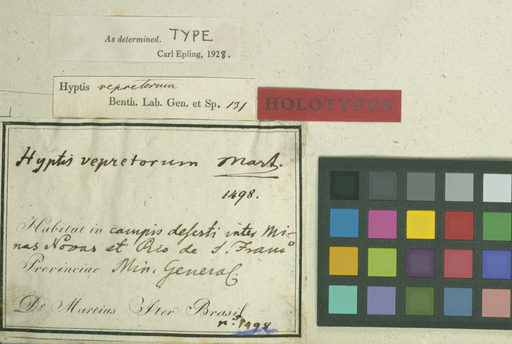 As determined. TYPE
Carl Epling, 1928.
Hyptis vepretorum
Benth. Lab. Gen. et Sp. 131
HOLOTYPUS
Hyptis vepretorum Mart.
1498.
Habitat in campis deserti inter Mi-
nas Novas et Rio de S. Franc
Provinciae Min. General
Dr Martius Iter Brasil
n. 1498